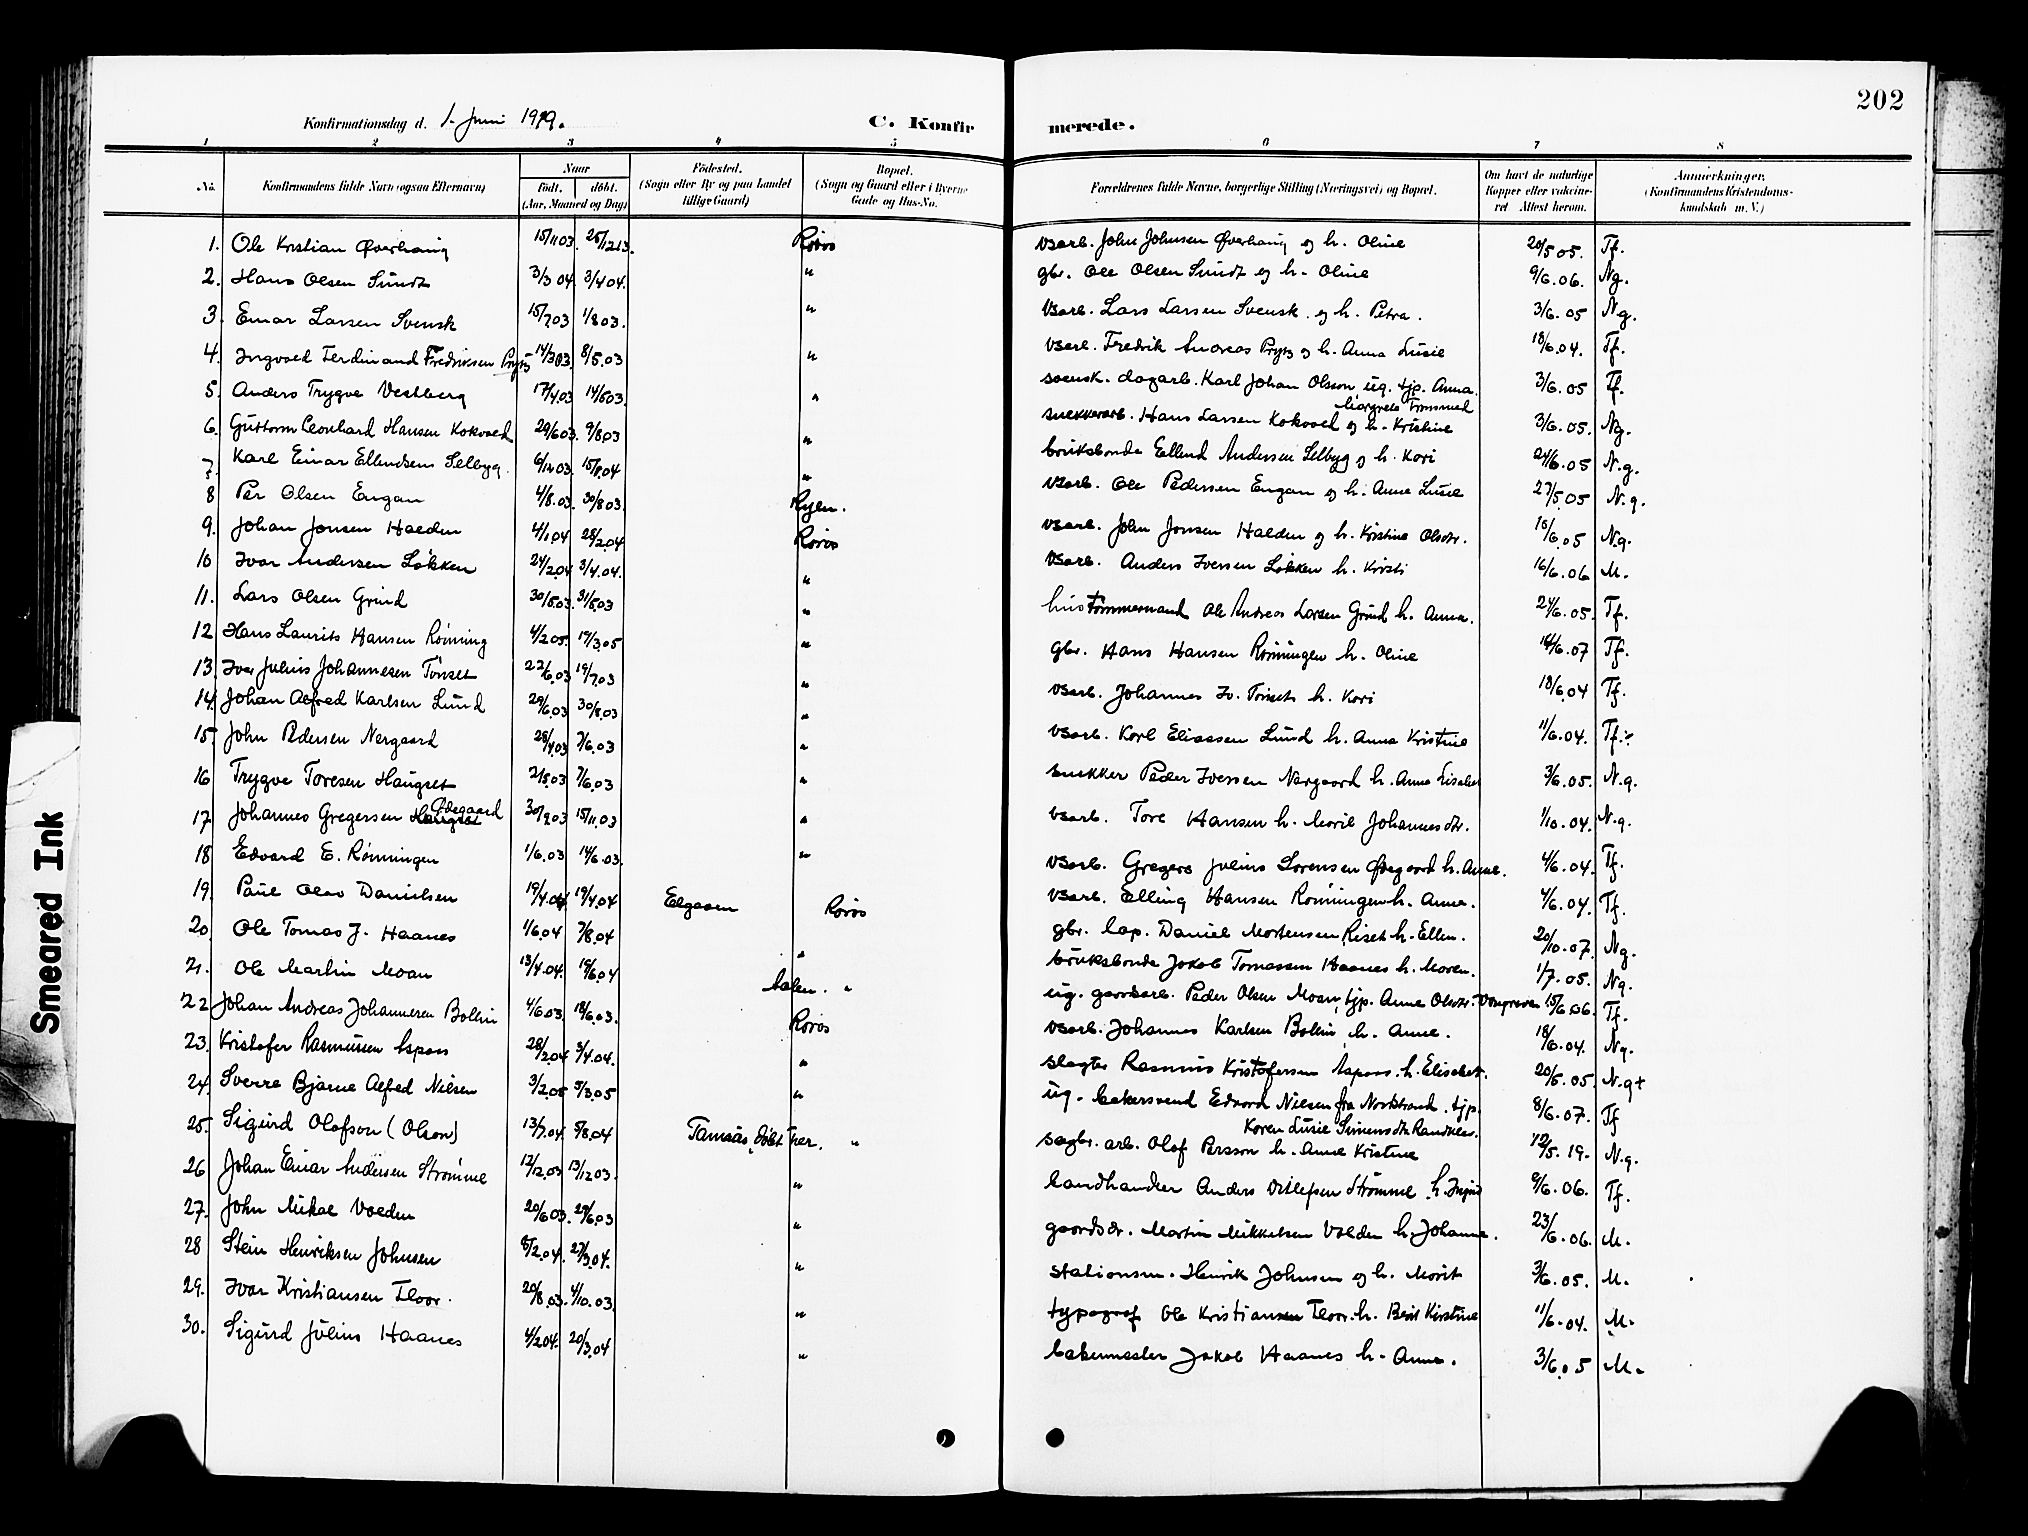 202
Konfirmationsdag d. 1. Juni 1919.
C. Konfirmerede.
1 2 3 4 5 6 7 8
No. Konfirmandens fulde Navn (ogsaa Efternavn) Naar født. døbt. (Aar, Maaned og Dag) Fødested. (Sogn eller By og paa Landet tillige Gaard) Bopæl. (Sogn og Gaard eller i Byerne Gade og Hus-No. Forældrenes fulde Navne, borgerlige Stilling (Næringsvei) og Bopæl. Om havt de naturlige Kopper eller vakcineret Attest herom. Anmerkninger. (Konfirmandens Kristendomskundskab m. V.)
1. Ole Kristian Øverhaug 15/11 03 Røros vsarb. John Johnsen Øverhaug og h. Oline 20/5 05. Tf.
2. Hans Olsen Sundt 3/3 04 3/4 04. " gbr. Ole Olsen Sundt og h. Oline 9/6. 06. Ng.
3. Einar Larsen Svensk 15/7 03 1/8 03. " Vsarb. Lars Larsen Svensk og h. Petra. 3/6. 05 Ng.
4. Ingvald Ferdinand Fredriksen Prytz 14/3 03 8/5. 03 " vsarb. Fredrik Andreas Prytz og h. Anna Lusie 18/6. 04. Tf.
5. Anders Trygve Vestberg 17/4 03 14/6 03. " svensk. dagarb. Karl Johan Olsson ug. tjp. Anna 3/6. 05 Tf.
Margrete
6. Guttorm Leonhard Hansen Kokvold 29/6 03. 9/8 03 " snekkerarb. Hans Larsen Kokvold og h. Kristine 3/6. 05. Ng.
7. Karl Einar Ellendsen Selbyg. 15/8 04 " bruksbonde Ellend Andersen Selbyg og h. Kari 24/6. 05 N.g.
8 Per Olsen Engan 4/8. 03. 30/8 03. Rylen. vsarb. Ole Pedersen Engan og h. Anne Lusie 27/5 05 N.g.
9. Johan Jonsen Halden 4/1 04 28/2 04 Røros vsarb. John Jonsen Halden og h. Kristine Olsdtr. 10/6. 05 Ng.
10 Ivar Andersen Løkken 24/2 04 3/4 04. " Vsarb. Anders Iversen Løkken h. Kirsti 16/6. 06 M.
11. Lars Olsen Grind 30/5. 03. 31/5 03 " hustømmermand Ole Andreas Larsen Grind h. Anna. 24/6. 05. Tf.
12 Hans Laurits Hansen Rønning 4/2 05. 19/3. 05 " gbr. Hans Hansen Rønningen h. Oline 16/6. 07 Tf.
13. Ivar Julius Johannesen Tønset 22/6. 03 19/7. 03 " vsarb. Johannes Iv. Tønset h. Kari 18/6. 04 Tf.
14. Johan Alfred Karlsen Lund 29/6. 03 30/8. 03 " vsarb. Karl Eliassen Lund h. Anna Kristine 11/6. 04. Tf.
15. John Pedersen Nergaard 28/4. 03 7/6. 03 " snekker Peder Iversen Nergaard h. Anne Lisabet 3/6. 05. N.g.
16 Trygve Toresen Haugset 2/5. 03 7/6. 03 " vsarb. Tore Hansen h. Marit Johannesdtr. 1/10. 04. N.g.
Ødegaard
17 Johannes Gregersen Haugset 30/9. 03 15/11. 03 " vsarb. Gregers Julius Sørensen Ødegaard h. Anne. 4/6. 04. Tf.
18 Edvard E. Rønningen 1/6. 03 14/6. 03. " vsarb. Elling Hansen Rønningen h. Anne. 4/6. 04. Tf.
19. Paul Olav Danielsen 19/4. 04 Elgaaen Røros gbr. lap. Daniel Mortensen Riset h. Ellen. 20/10. 07. Ng.
20 Ole Tomas J. Haanes 1/6. 04 7/8. 04 " bruksbonde Jakob Tomassen Haanes h. Maren. 1/7. 05. Ng.
21. Ole Martin Moan 13/4. 04. 19/6. 04 Aalen. " ug. gaardarb. Peder Olsen Moan, tjp. Anne Olsdtr. 15/6. 06. Tf.
22 Johan Andreas Johannesen Bollin 4/6 03. 18/6. 03. Røros vsarb. Johannes Karlsen Bollin, h. Anne. 18/6. 04. Ng.
23. Kristofer Rasmussen Aspaas 28/2 04 3/4. 04. " slagter Rasmus Kristofersen Aspaas. h. Elisabet. 20/5. 05. N.g+
24 Sverre Bjarne Alfred Nilsen 3/2. 05 5/3. 05 " ug. bakersvend Edvard Nilsen fra Nordstrand. tjp. 8/6. 07. Tf
Karen Lusie Simensdtr.
25. Sigurd Olofson (Olson) 13/7. 04. 5/8. 04 Tamsäs, døbt her. " sagbr. arb. Olof Persson h. Anne Kristine 12/5. 19. N.g.
26 Johan Einar Andersen Strømme 12/12. 03 13/12 03. " landhandler Anders Ditlefsen Strømme h. Ingrid 9/6. 06. Tf.
27. John Mikal Volden 20/6 03. 29/6. 03 " gaardbr. Martin Mikkelsen Volden h. Johanne. 23/6. 06. M.
28 Stein Henriksen Johnsen 8/2. 04. 27/3. 04. " stationsm. Henrik Johnsen og h. Marit 3/6. 05. M.
29. Ivar Kristiansen Floor. 20/8. 03. 4/10. 03. " typograf Ole Kristiansen Floor. h. Berit Kirstine 11/6. 04. M.
30. Sigurd Julius Haanes 4/2 04. 20/3. 04 " bakermester Jakob Haanes h. Anne. 3/6. 05 M.
Smeared Ink